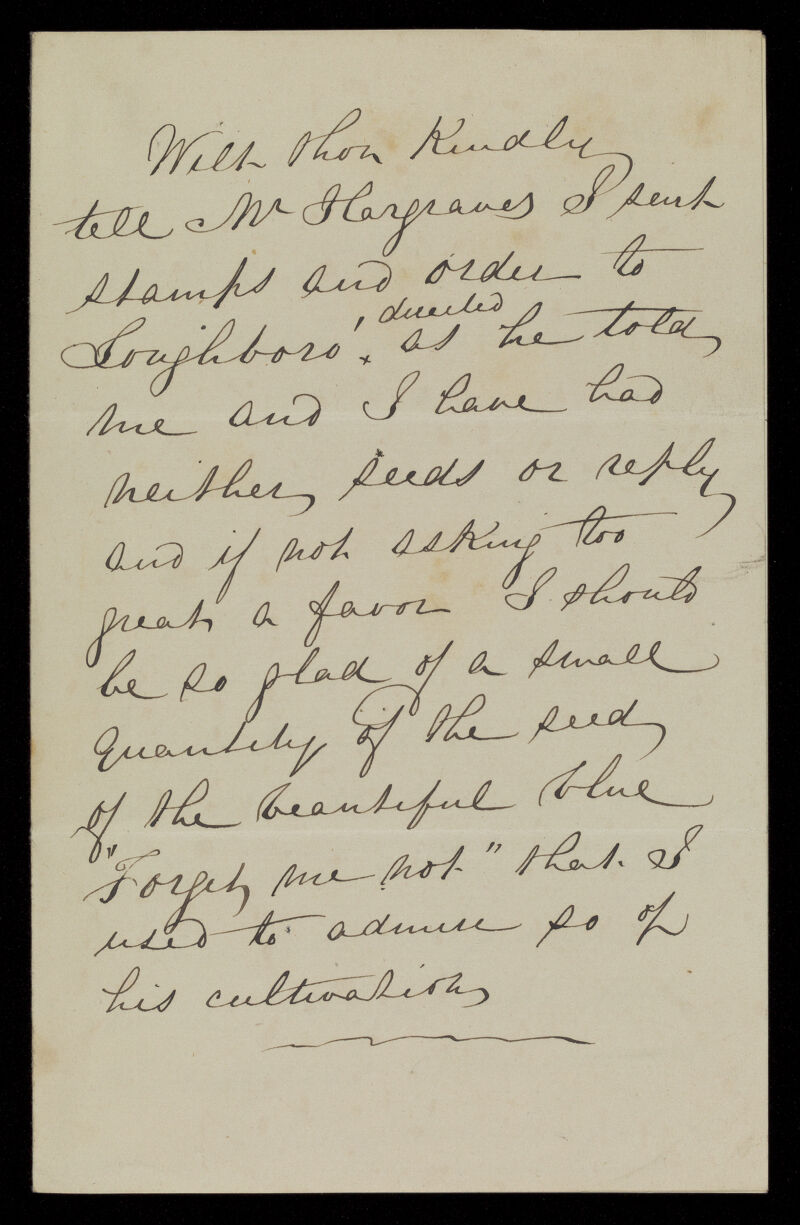 Wilt thou Kindly
tell Mr Hargraves I sent
stamps and order to
Loughboro', directed as he told
me and I have had
neither seeds or reply
and if not asking too
great a favor I should
be so glad of a small
quantity of the seed
of the beautiful blue
"Forget me not" that I
used to admire so of
his cultivation